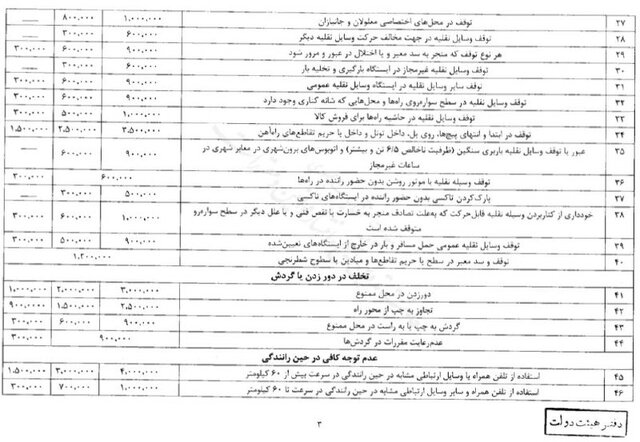 ۲۷ توقف در محل‌های اختصاصی معلولان و جانبازان ۱,۰۰۰,۰۰۰ ۸۰۰,۰۰۰ ——
۲۸ توقف وسایل نقلیه در جهت مخالف حرکت وسایل نقلیه دیگر ۶۰۰,۰۰۰ ۳۰۰,۰۰۰ ——
۲۹ هر نوع توقف که منجر به سد معبر و یا اختلال در عبور و مرور شود ۹۰۰,۰۰۰ ۶۰۰,۰۰۰ ۳۰۰,۰۰۰
۳۰ توقف وسایل نقلیه غیرمجاز در ایستگاه بارگیری و تخلیه بار ۶۰۰,۰۰۰ ۳۰۰,۰۰۰ ——
۳۱ توقف سایر وسایل نقلیه در ایستگاه وسایل نقلیه عمومی ۹۰۰,۰۰۰ ۶۰۰,۰۰۰ ۳۰۰,۰۰۰
۳۲ توقف وسایل نقلیه در سطح سواره‌روی راه‌ها و محل‌هایی که شانه کناری وجود دارد ۹۰۰,۰۰۰ ۶۰۰,۰۰۰ ۳۰۰,۰۰۰
۳۳ توقف وسایل نقلیه در حاشیه راه‌ها برای فروش کالا ۱,۰۰۰,۰۰۰ ۵۰۰,۰۰۰ ۳۰۰,۰۰۰
۳۴ توقف در ابتدا و انتهای پیچ‌ها، روی پل، داخل تونل و داخل یا حریم تقاطع‌های راه‌آهن ۳,۵۰۰,۰۰۰ ۲,۵۰۰,۰۰۰ ۱,۵۰۰,۰۰۰
۳۵ عبور یا توقف وسایل نقلیه باربری سنگین (ظرفیت ناخالص ۶/۵ تن و بیشتر) و اتوبوس‌های برون‌شهری در معابر شهری در ۹۰۰,۰۰۰ ۶۰۰,۰۰۰ ——
ساعات غیرمجاز
۳۶ توقف وسیله نقلیه با موتور روشن بدون حضور راننده در راه‌ها ۶۰۰,۰۰۰ ۳۰۰,۰۰۰
۳۷ پارک‌کردن تاکسی بدون حضور راننده در ایستگاه‌های تاکسی ۵۰۰,۰۰۰ ۳۰۰,۰۰۰ ——
۳۸ خودداری از کنار‌بردن وسیله نقلیه قابل‌حرکت که به‌علت تصادف منجر به خسارت یا نقص فنی و یا علل دیگر در سطح سواره‌رو ۱,۰۰۰,۰۰۰ ۶۰۰,۰۰۰ ۳۰۰,۰۰۰
متوقف شده است
۳۹ توقف وسایل نقلیه عمومی حمل مسافر و بار در خارج از ایستگاه‌های تعیین‌شده ۹۰۰,۰۰۰ ۵۰۰,۰۰۰ ۳۰۰,۰۰۰
۴۰ توقف و سد معبر در سطح یا حریم تقاطع‌ها و میادین با سطوح شطرنجی ۱,۲۰۰,۰۰۰
تخلف در دور زدن یا گردش
۴۱ دورزدن در محل ممنوع ۳,۰۰۰,۰۰۰ ۲,۰۰۰,۰۰۰ ۱,۰۰۰,۰۰۰
۴۲ تجاوز به چپ از محور راه ۲,۵۰۰,۰۰۰ ۱,۵۰۰,۰۰۰ ۹۰۰,۰۰۰
۴۳ گردش به چپ یا به راست در محل ممنوع ۹۰۰,۰۰۰ ۶۰۰,۰۰۰ ۳۰۰,۰۰۰
۴۴ عدم‌رعایت مقررات در گردش‌ها ۹۰۰,۰۰۰ ۳۰۰,۰۰۰
عدم توجه کافی در حین رانندگی
۴۵ استفاده از تلفن همراه یا وسایل ارتباطی مشابه در حین رانندگی در سرعت بیش از ۶۰ کیلومتر ۴,۰۰۰,۰۰۰ ۳,۰۰۰,۰۰۰ ۱,۵۰۰,۰۰۰
۴۶ استفاده از تلفن همراه و سایر وسایل ارتباطی مشابه در حین رانندگی در سرعت تا ۶۰ کیلومتر ۱,۰۰۰,۰۰۰ ۷۰۰,۰۰۰ ۳۰۰,۰۰۰
۳
دفتر هیئت دولت